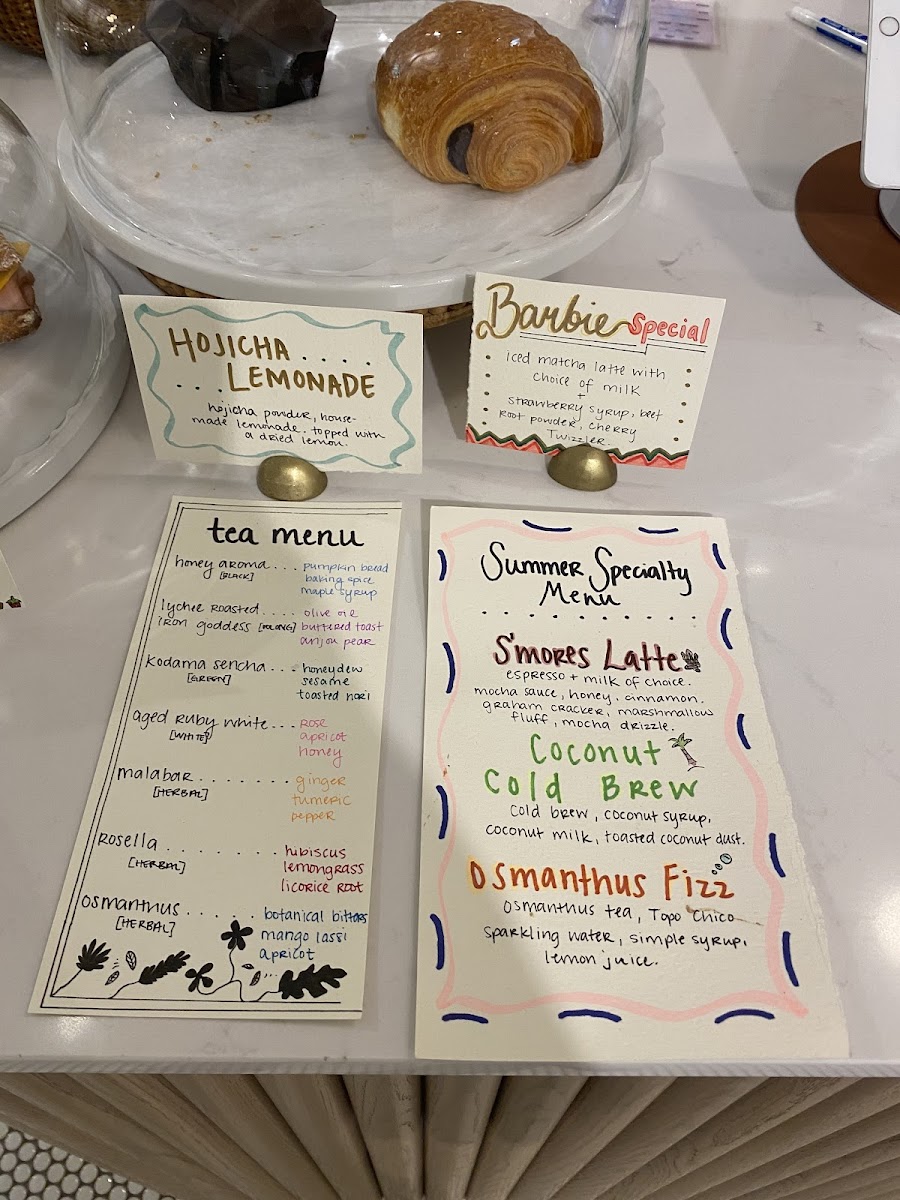 HOJICHA . . . . .
. . . LEMONADE
hojicha powder, house-
made lemonade. topped with
a dried lemon.
Barbie Special
iced matcha latte with
choice of milk
+
strawberry syrup, beet
root powder, cherry
Twizzler.
tea menu
honey aroma . . . pumpkin bread
[BLACK] baking spice
maple syrup
lychee roasted . . . . olive oil
iron goddess [OOLONG] buttered toast
anjou pear
kodama sencha . . . honeydew
[GREEN] sesame
toasted nori
aged ruby white . . . rose
[WHITE] apricot
honey
malabar . . . . . . . . ginger
[HERBAL] tumeric
pepper
rosella . . . . . . . . hibiscus
[HERBAL] lemongrass
licorice root
osmanthus . . . . . . botanical bitters
[HERBAL] mango lassi
apricot
Summer Specialty
Menu
. . . . . . . . .
S'mores Latte
espresso + milk of choice.
mocha sauce, honey, cinnamon.
graham cracker, marshmallow
fluff, mocha drizzle.
Coconut
Cold Brew
cold brew, coconut syrup,
coconut milk, toasted coconut dust.
Osmanthus Fizz
osmanthus tea, Topo Chico
sparkling water, simple syrup,
lemon juice.